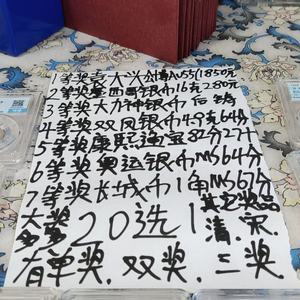 1等奖袁大头公博AU55(1850元
2等奖墨西哥银币16克280元
3等奖大力神银币后铸
4等奖双凤银币49克64分
5等奖康熙通宝82分27个
6等奖奥运银币MS64分
7等奖长城币1角MS67分
大奖20选1 其它奖品
多多 清.宋
有单奖.双奖.三奖